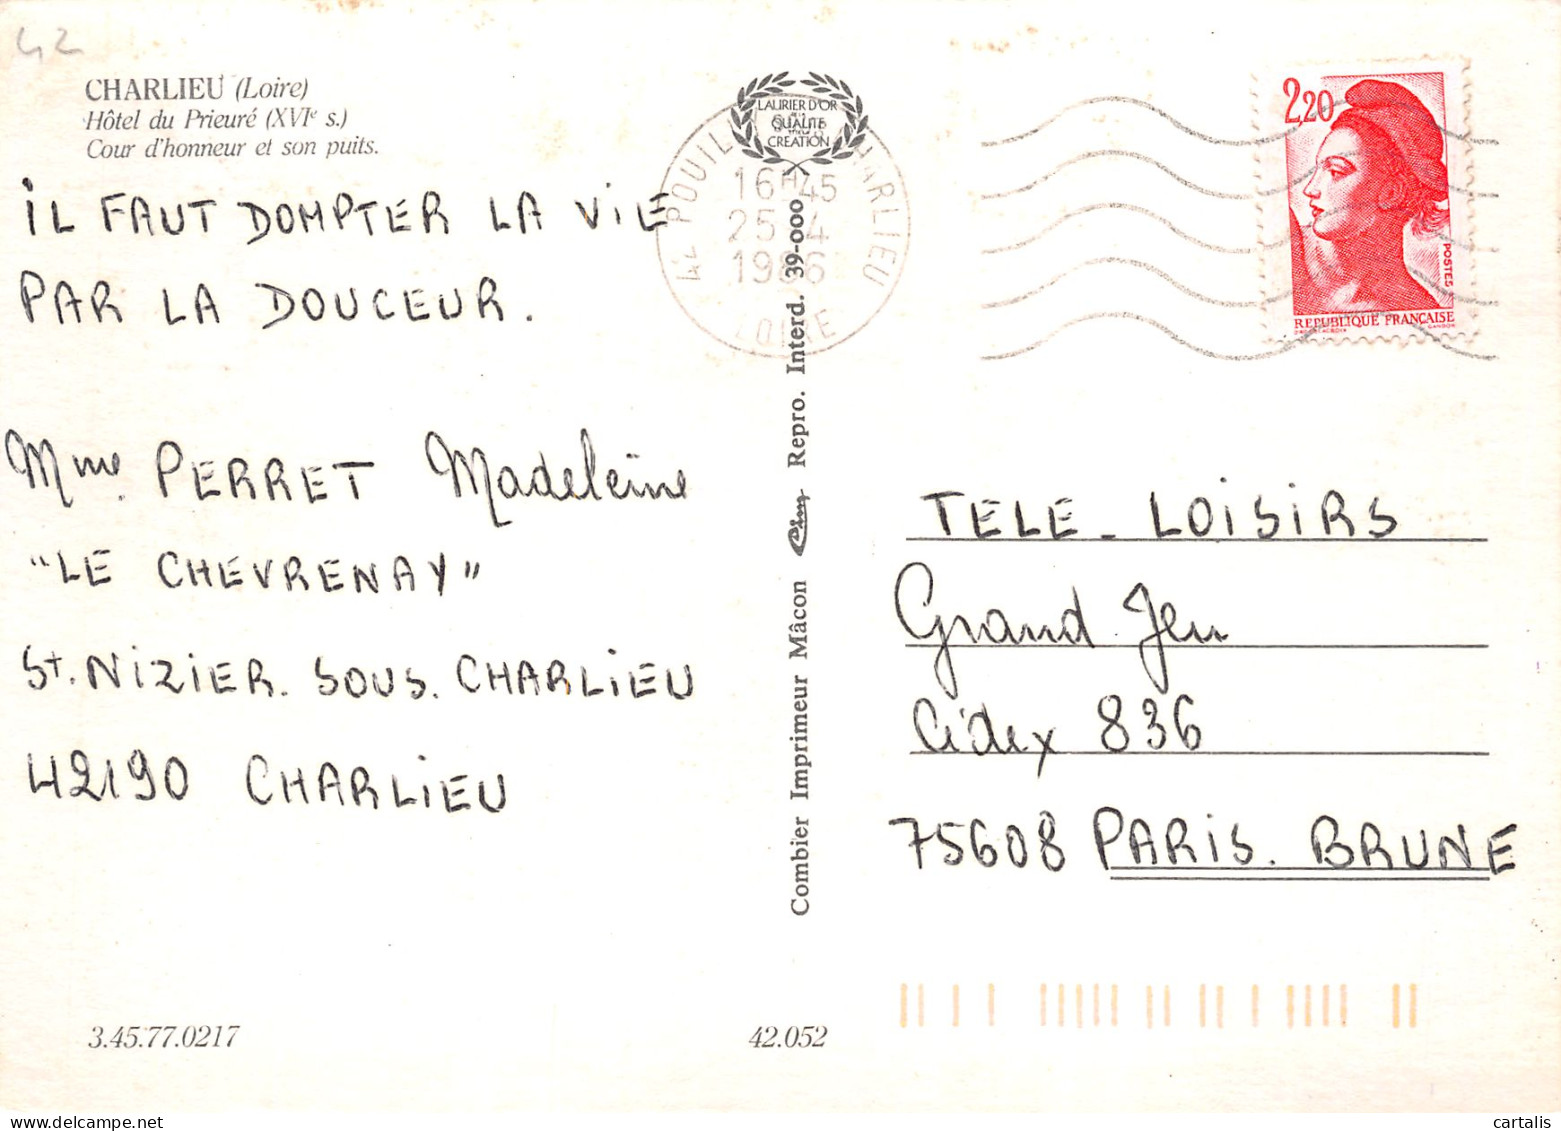 42
CHARLIEU (Loire)
Hôtel du Prieuré (XVIe s.)
Cour d'honneur et son puits.
IL FAUT DOMPTER LA VIE
PAR LA DOUCEUR.
Mme. PERRET Madeleine
"LE CHEVRENAY"
St. NIZIER. SOUS. CHARLIEU
42190 CHARLIEU
3.45.77.0217
42.052
LAURIER D'OR
QUALITE
CREATION
42 POUILL ARLIEU
16H45
25 4
1986
LOIRE
Combier Imprimeur Mâcon Cim Repro. Interd. 39-000
2,20
POSTES
REPUBLIQUE FRANÇAISE
GANDON
TELE - LOISIRS
Grand Jeu
Cidex 836
75608 PARIS. BRUNE
cartalis